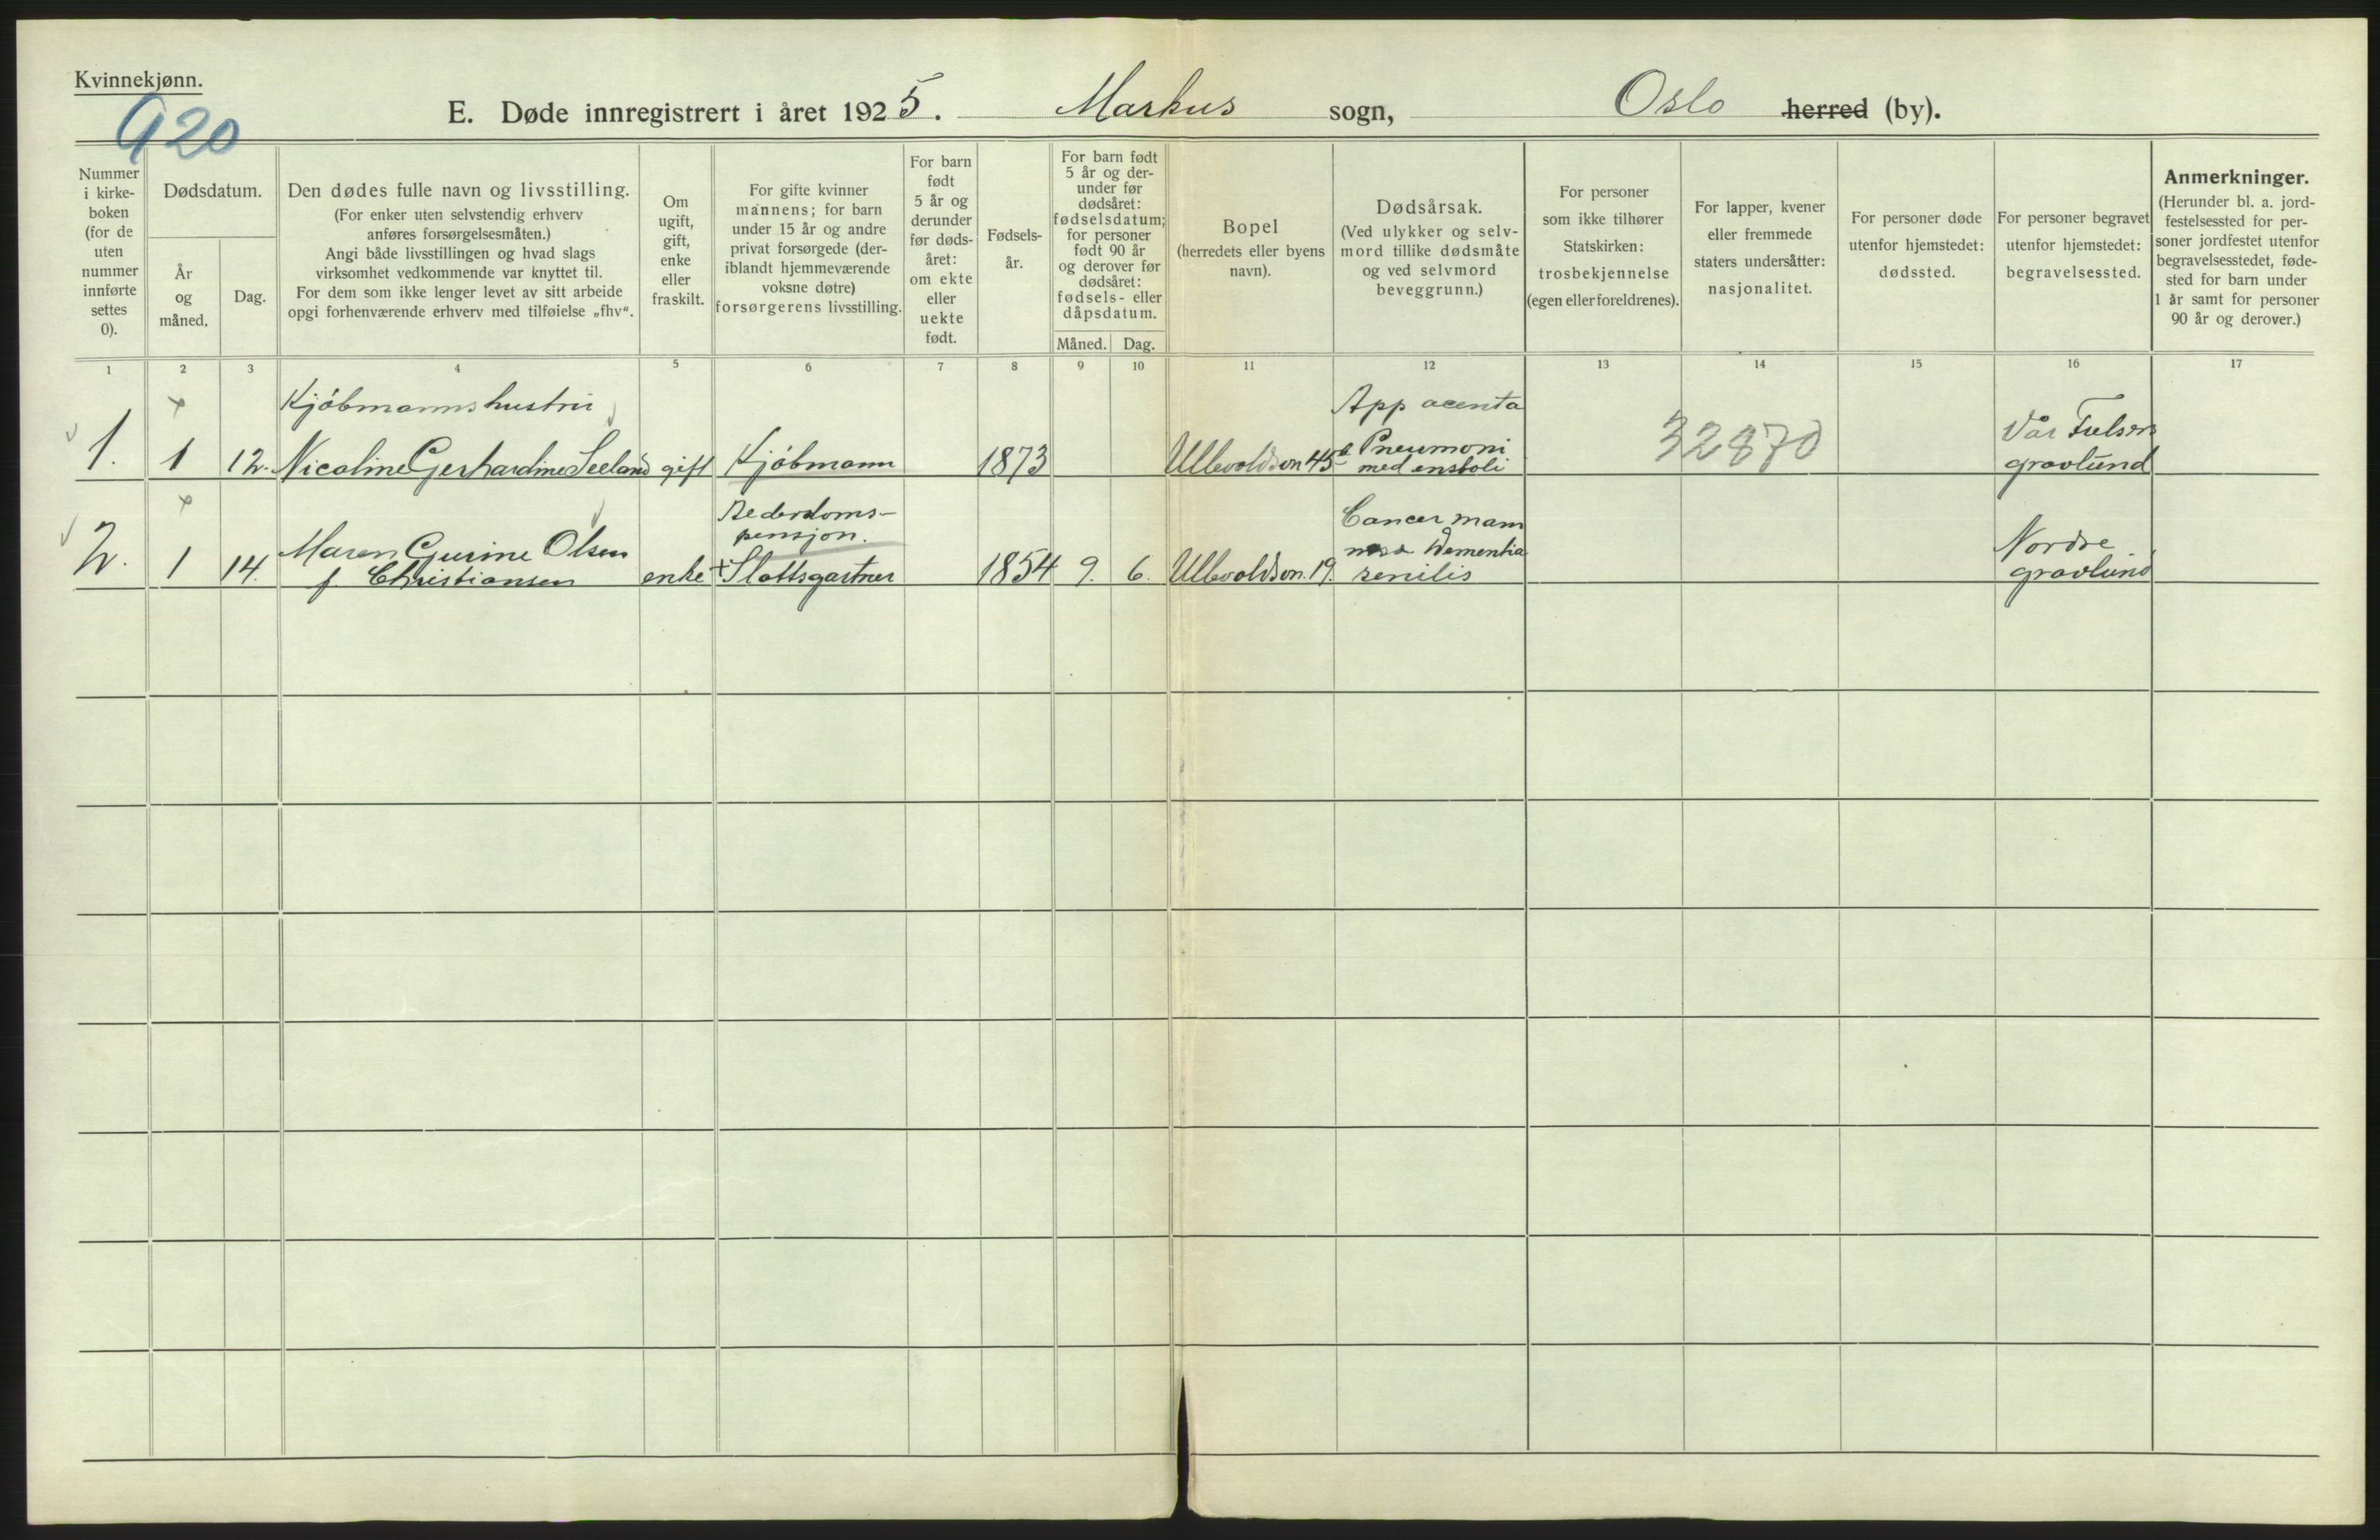 Kvinnekjønn.
920
E. Døde innregistrert i året 1925. Markus sogn, Oslo herred (by).
Nummer i kirke-boken (for de uten nummer innførte settes 0).
Dødsdatum.
År og måned.
Dag.
Den dødes fulle navn og livsstilling.
(For enker uten selvstendig erhverv
anføres forsørgelsesmåten.)
Angi både livsstillingen og hvad slags
virksomhet vedkommende var knyttet til.
For dem som ikke lenger levet av sitt arbeide
opgi forhenværende erhverv med tilføielse „fhv“.
Om
ugift,
gift,
enke
eller
fraskilt.
For gifte kvinner
mannens; for barn
under 15 år og andre
privat forsørgede (der-
iblandt hjemmeværende
voksne døtre)
forsørgerens livsstilling.
For barn
født
5 år og
derunder
før døds-
året:
om ekte
eller
uekte
født.
Fødsels-
år.
For barn født
5 år og der-
under før
dødsåret:
fødselsdatum;
for personer
født 90 år
og derover før
dødsåret:
fødsels- eller
dåpsdatum.
Måned. Dag.
Bopel
(herredets eller byens
navn).
Dødsårsak.
(Ved ulykker og selv-
mord tillike dødsmåte
og ved selvmord
beveggrunn.)
For personer
som ikke tilhører
Statskirken:
trosbekjennelse
(egen eller foreldrenes).
For lapper, kvener
eller fremmede
staters undersåtter:
nasjonalitet.
For personer døde
utenfor hjemstedet:
dødssted.
For personer begravet
utenfor hjemstedet:
begravelsessted.
Anmerkninger.
(Herunder bl. a. jord-
festelsessted for per-
soner jordfestet utenfor
begravelsesstedet, føde-
sted for barn under
1 år samt for personer
90 år og derover.)
1 2 3 4 5 6 7 8 9 10 11 12 13 14 15 16 17
Kjøbmannshustru
1. 1 12. Nicoline Gerhardine Seeland gift Kjøbmann 1873 Ullevoldsvn 45
App acuta
Pneumoni
med emboli
32870
Vår Frelsers
gravlund
2. 1 14.
Maren Gurine Olsen
f. Christiansen
enke
Alderdoms-
pensjon.
+Slottsgartner
1854 9. 6. Ullevoldsvn. 19.
Cancer mam
mae Dementia
senilis
Nordre
gravlund